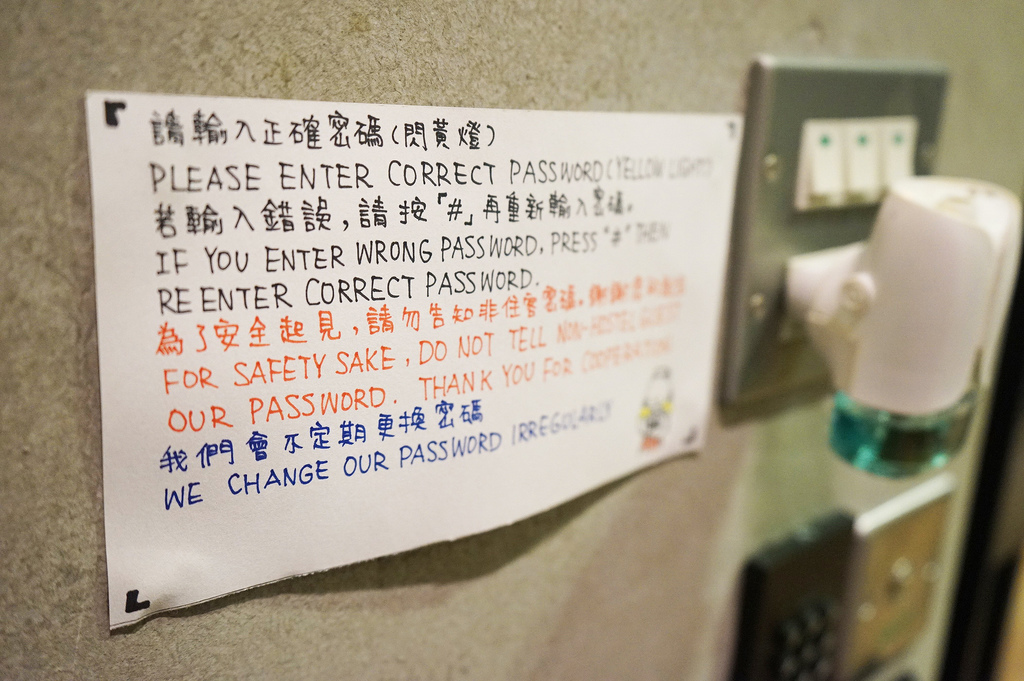 請輸入正確密碼(閃黃燈)
PLEASE ENTER CORRECT PASSWORD (YELLOW LIGHT)
若輸入錯誤,請按「#」再重新輸入密碼。
IF YOU ENTER WRONG PASSWORD, PRESS "#" THEN
REENTER CORRECT PASSWORD.
為了安全起見,請勿告知非住客密碼。謝謝您的配合
FOR SAFETY SAKE, DO NOT TELL NON-HOSTEL GUEST
OUR PASSWORD. THANK YOU FOR COOPERATION
我們會不定期更換密碼
WE CHANGE OUR PASSWORD IRREGULARLY